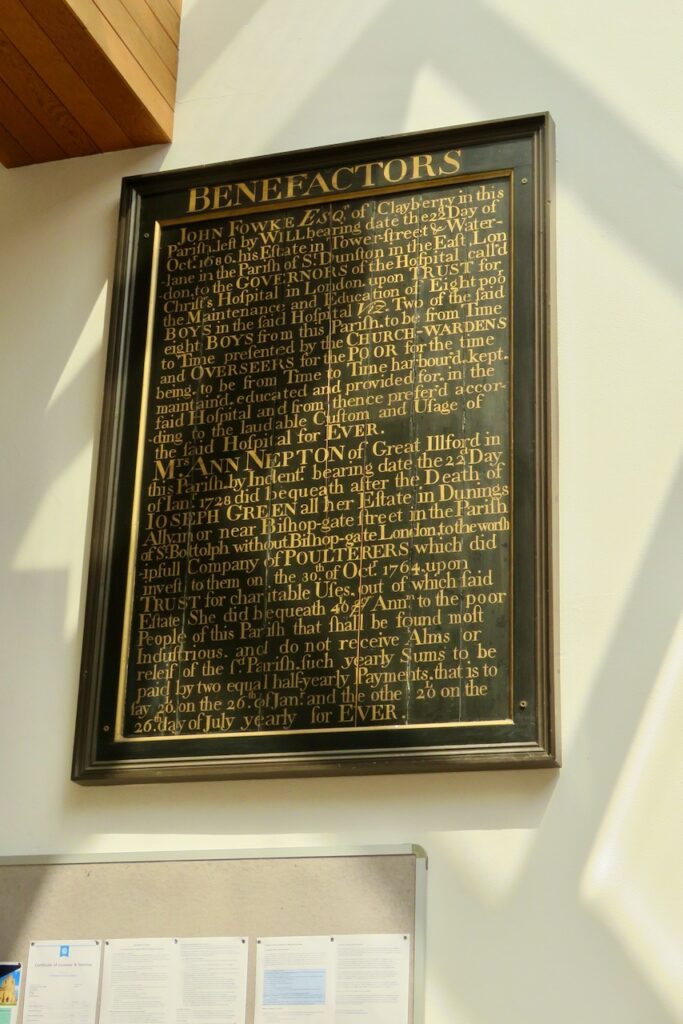 BENEFACTORS
JOHN FOWKE ESQr. of Clayberry in this
Parish, left by WILL bearing date the 22d Day of
Octr. 1686. his Estate in Tower-street & Water-
-lane in the Parish of St. Dunston in the East, Lon
-don, to the GOVERNORS of the Hospital call'd
Christ's Hospital in London, upon TRUST for
the Maintenance and Education of Eight poo
BOYS in the said Hospital Viz. Two of the said
eight BOYS from this Parish, to be from Time
to Time presented by the CHURCH-WARDENS
and OVERSEERS for the POOR for the time
being, to be from Time to Time harbour'd, kept,
maintain'd, educated and provided for, in the
said Hospital and from thence prefer'd accor-
ding to the laudable Custom and Usage of
the said Hospital for EVER.
Mrs ANN NEPTON of Great Illford in
this Parish, by Indentr. bearing date the 22d Day
of Ian. 1728 did bequeath after the Death of
IOSEPH GREEN all her Estate in Dunings
Ally, in or near Bishop-gate street in the Parish
of St. Bottolph without Bishop-gate London, to the worsh
-ipfull Company of POULTERERS which did
invest to them on the 30th. of Octr. 1764, upon
TRUST for charitable Uses, out of which said
Estate She did bequeath 40l. Pr Annm to the poor
People of this Parish that shall be found most
Industrious, and do not receive Alms or
releif of the sd. Parish, such yearly Sums to be
paid by two equal half yearly Payments, that is to
say 20l. on the 26th. of Jan: and the othe 20l on the
26th. day of July yearly for EVER.